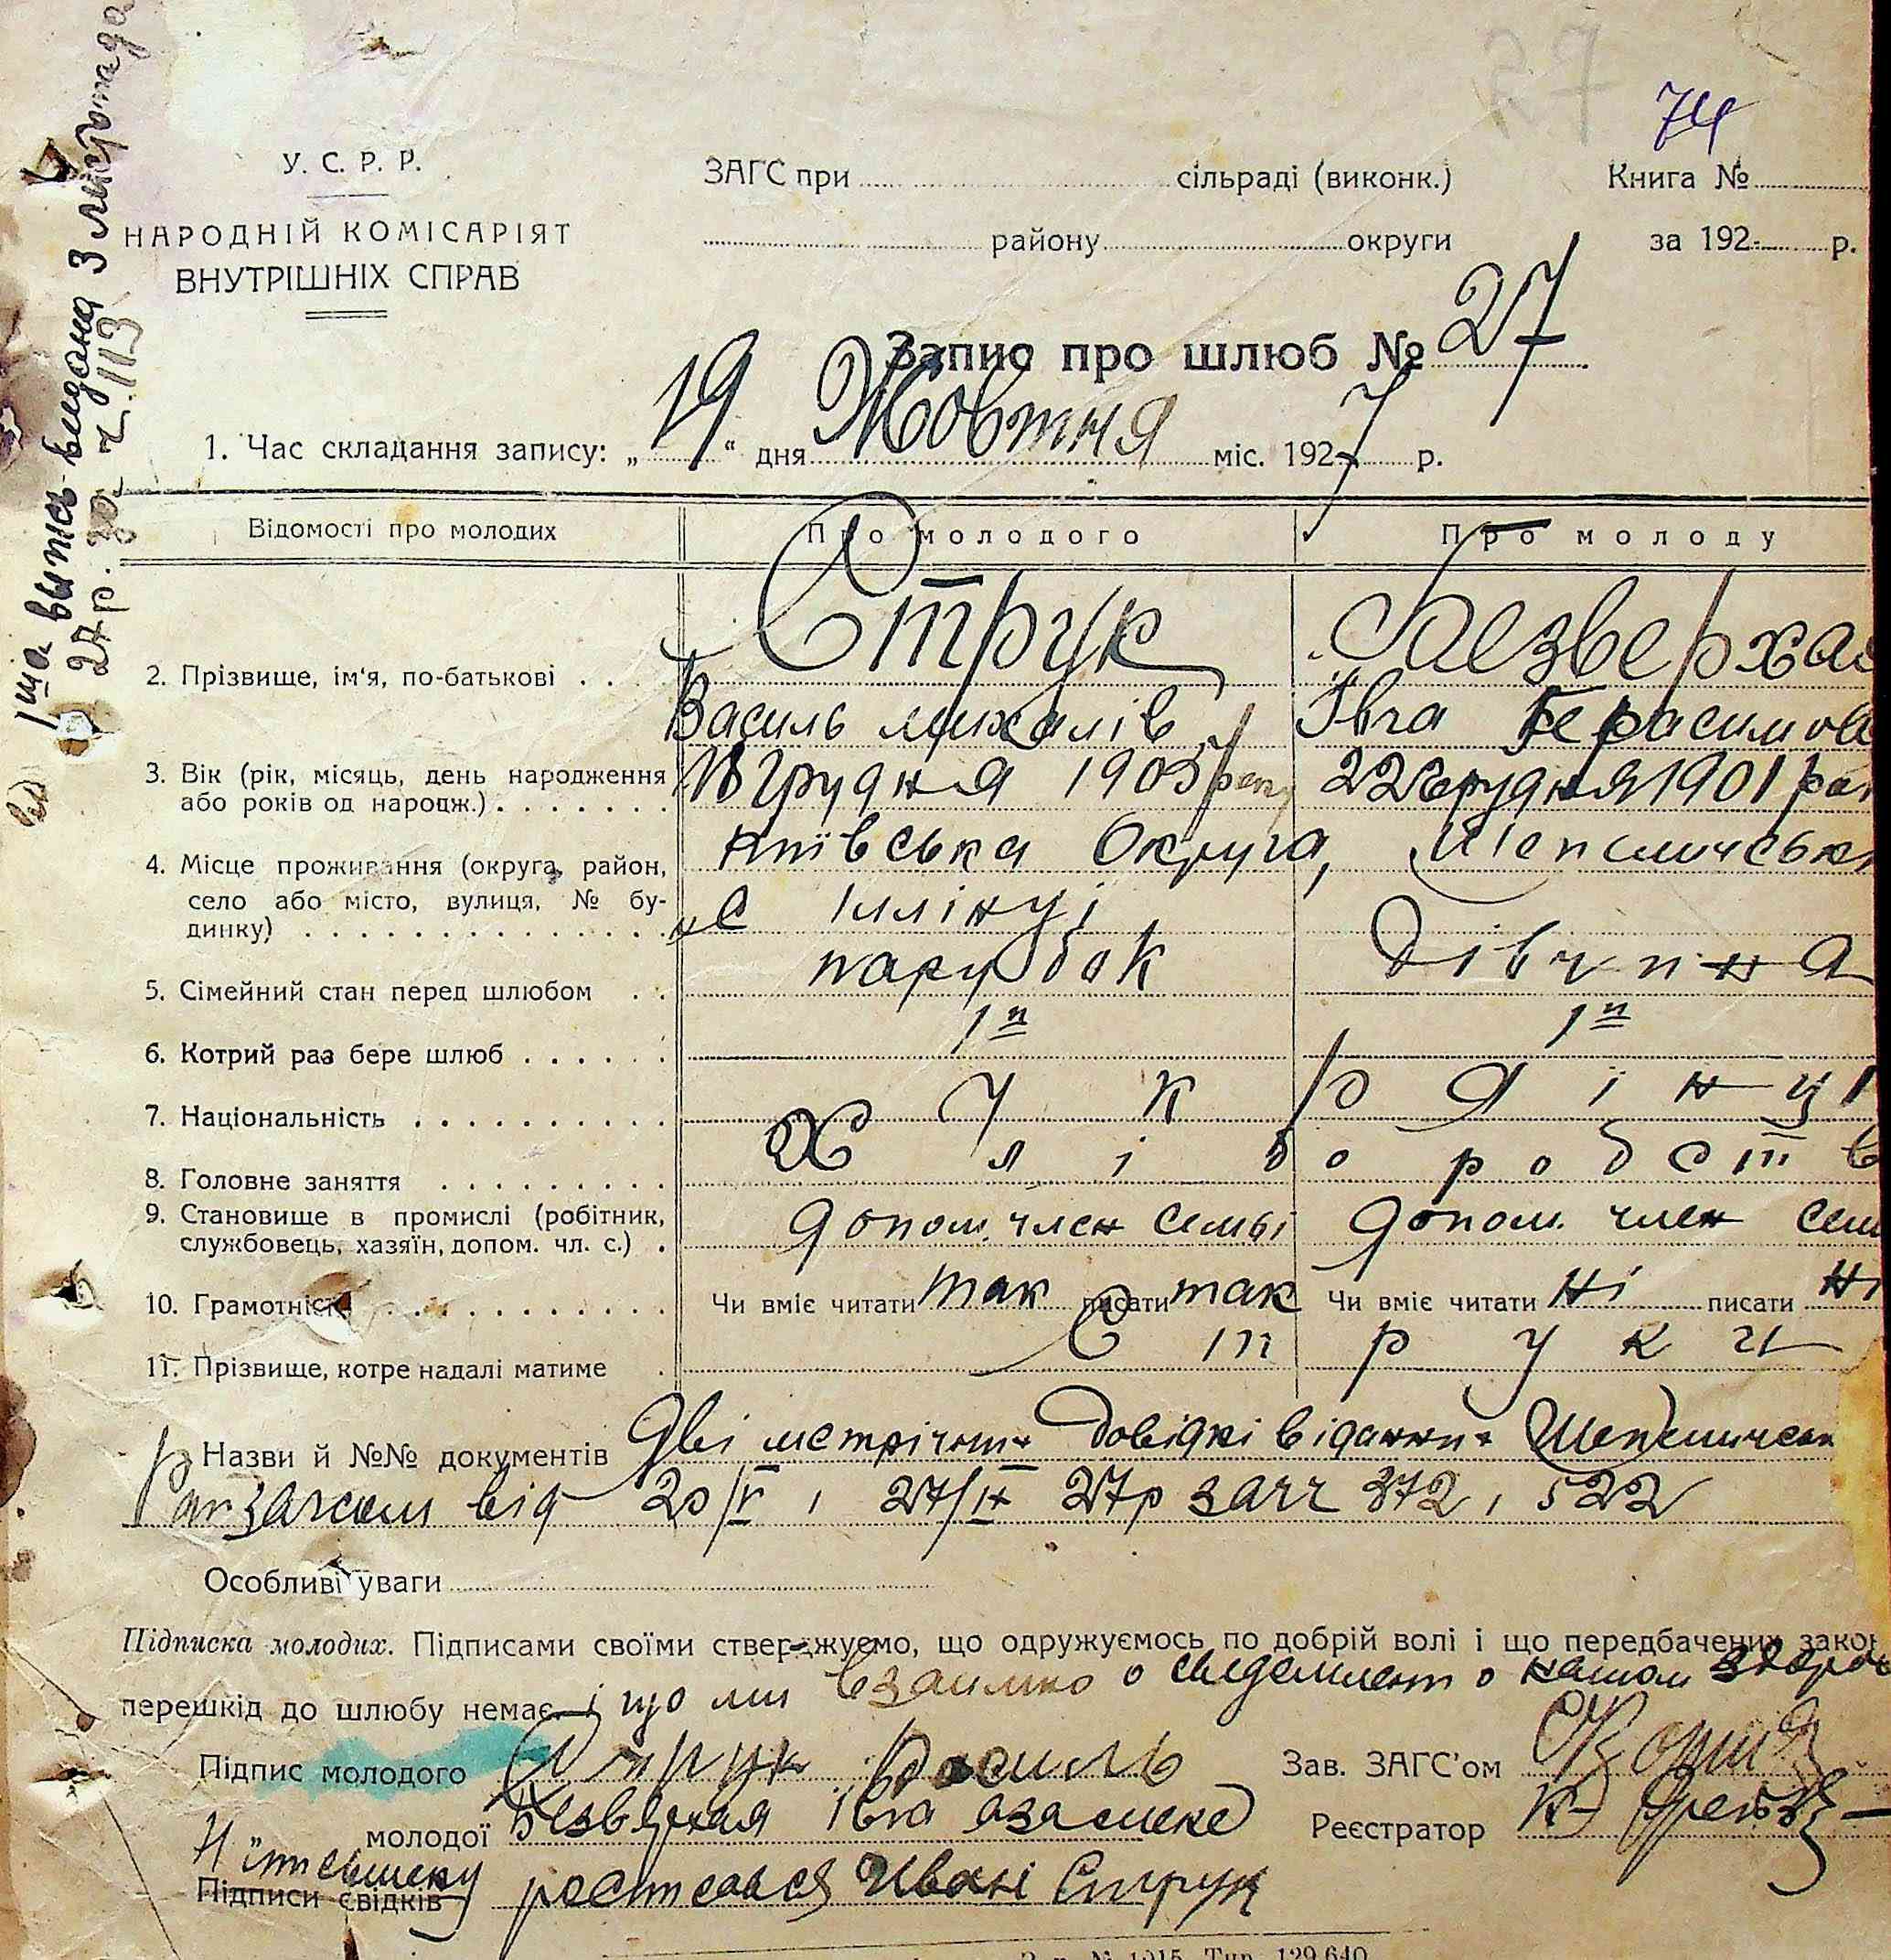 74
У. С. Р. Р.
ЗАГС при сільраді (виконк.) Книга №
НАРОДНІЙ КОМІСАРІЯТ
ВНУТРІШНІХ СПРАВ
району округи за 192 р.
Запис про шлюб № 27
1. Час складання запису: „19“ дня Жовтня міс. 1927 р.
Відомості про молодих Про молодого Про молоду
Струк Безверхая
2. Прізвище, ім'я, по-батькові
Василь михалів Івга Герасимов
3. Вік (рік, місяць, день народження
або років од народж.)
Грудня 1903 22 грудня 1901
4. Місце проживання (округа, район,
село або місто, вулиця, № бу-
динку)
Київська Округа,
с Іллінці
5. Сімейний стан перед шлюбом парубок Дівчина
6. Котрий раз бере шлюб 1й 1й
7. Національність Українці
8. Головне заняття Хліборобств
9. Становище в промислі (робітник,
службовець, хазяїн, допом. чл. с.)
допом. член семьі допом. член сем
10. Грамотність Чи вміє читати так писати так Чи вміє читати Ні писати Ні
11. Прізвище, котре надалі матиме Струки
Назви й №№ документів Дві метрічни довідкі віданни
від 20/V і 27/IX 27р за чч 372, 522
Особливі уваги
Підписка молодих. Підписами своїми стверджуємо, що одружуємось по добрій волі і що передбачених закон
перешкід до шлюбу немає і що ми взаимно о нашом
Підпис молодого Струк Василь Зав. ЗАГС'ом
молодої Безверхая Івга Реєстратор
Підписи свідків Ивані Струк
1ша випись видана 3 листопада
27 р. за ч. 113